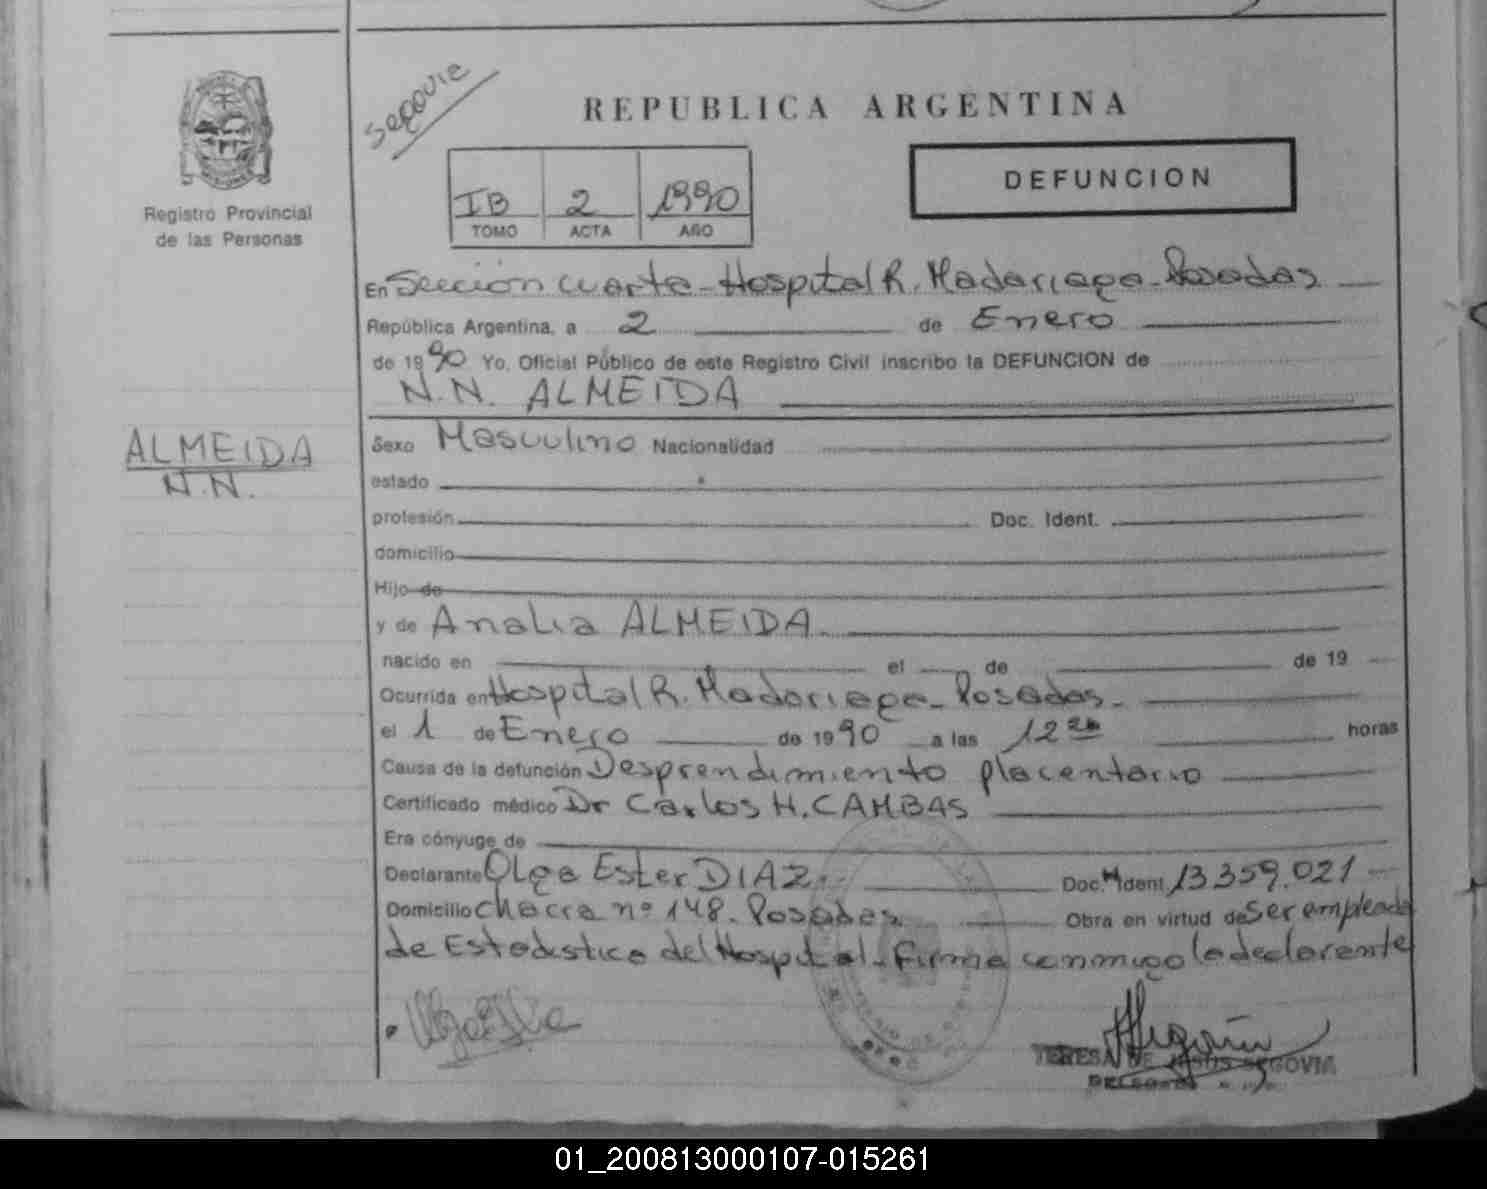 Segovia
REPUBLICA ARGENTINA
DEFUNCION
IB 2 1990
TOMO ACTA AÑO
Registro Provincial
de las Personas
En Sección cuarta - Hospital R. Madariaga - Posadas
República Argentina, a 2 de Enero
de 1990 Yo, Oficial Público de este Registro Civil inscribo la DEFUNCION de
N.N. ALMEIDA
ALMEIDA
N.N.
Sexo Masculino Nacionalidad
estado
profesión Doc. Ident.
domicilio
Hijo de
y de Analia ALMEIDA
nacido en el de de 19
Ocurrida en Hospital R. Madariaga - Posadas.
el 1 de Enero de 1990 a las 12 horas
Causa de la defunción Desprendimiento placentario
Certificado médico Dr Carlos H. CAMBAS
Era cónyuge de
Declarante Olga Ester DIAZ Doc. Ident. 13.359.021
Domicilio Chacra nº 148. Posadas Obra en virtud de Ser empleada
de Estadistica del Hospital. Firma conmigo la declarante
TERESA DE JESUS SEGOVIA
01_200813000107-015261